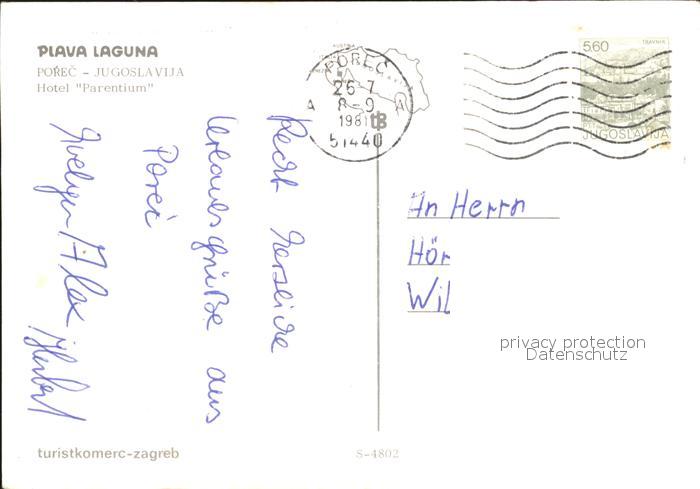 PLAVA LAGUNA
POREČ - JUGOSLAVIJA
Hotel "Parentium"
POREČ
26-7
A 8-9 A
1981
51440
TRAVNIK
5.60
JUGOSLAVIJA
Recht herzliche
Urlaubsgrüße aus
Poreč
Evelyn Alex Herbert
An Herrn
Hör
Wil
privacy protection
Datenschutz
turistkomerc-zagreb
S-4802